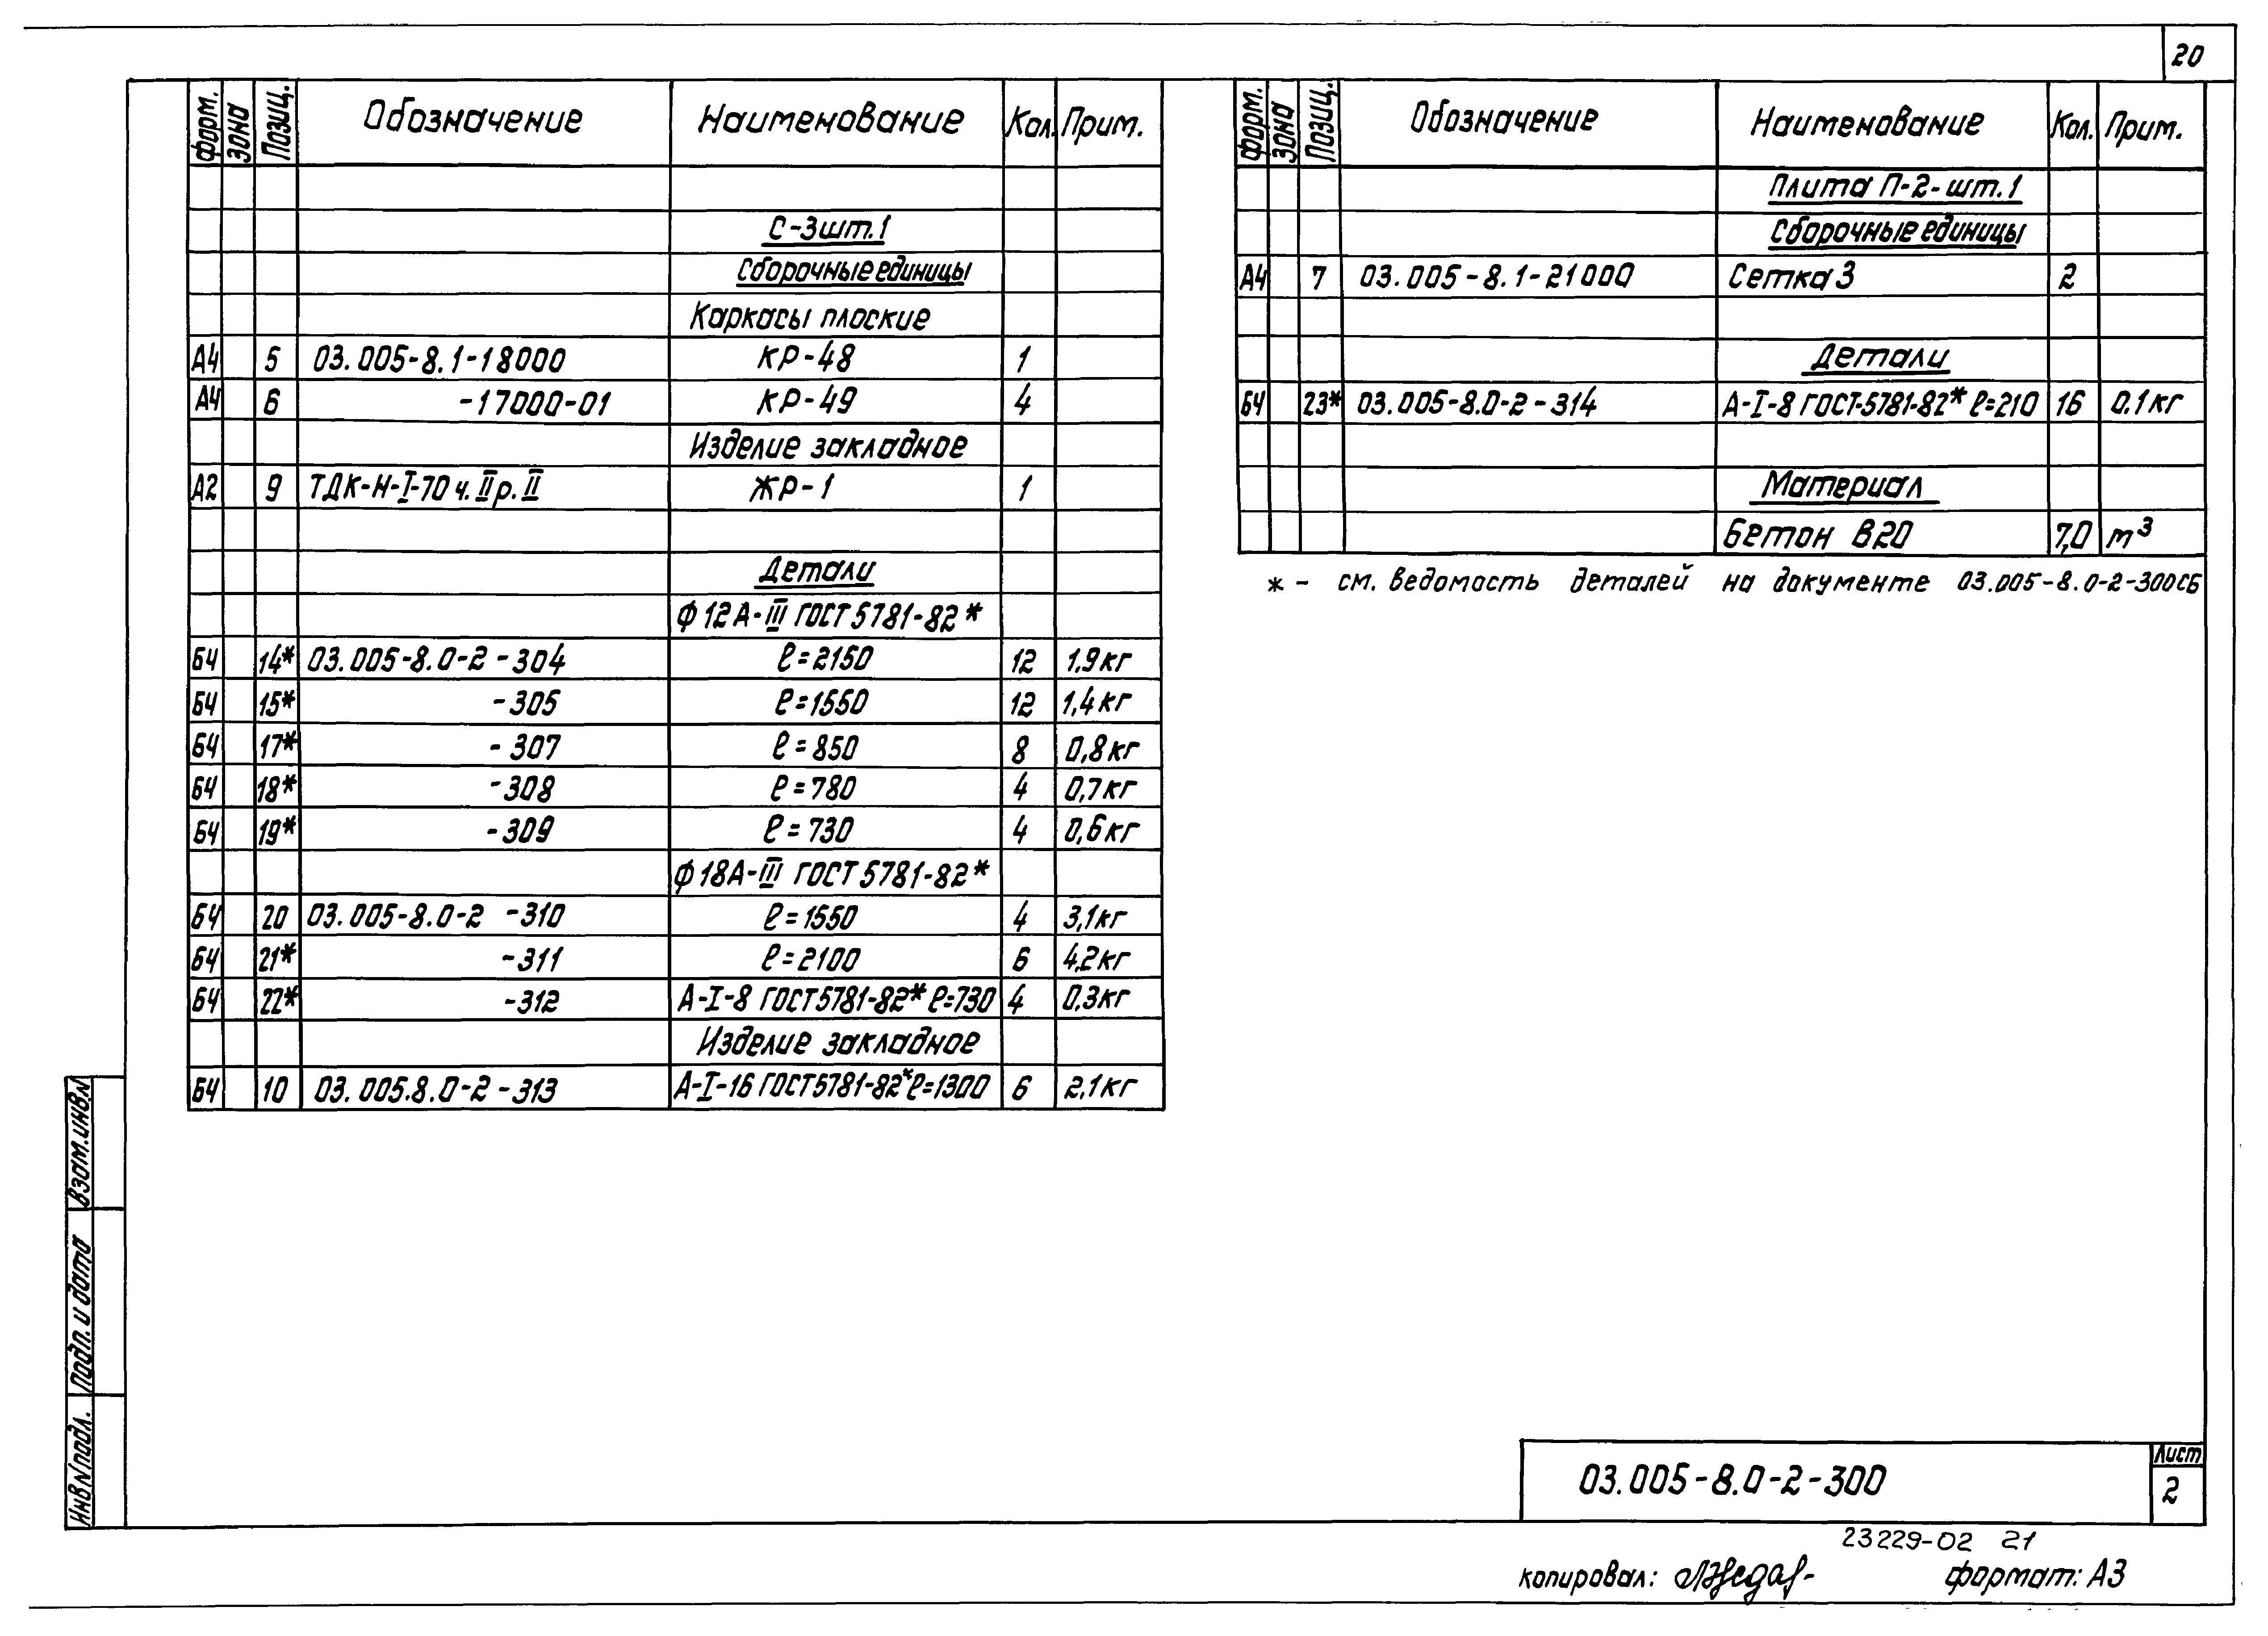 20
Форм. Зона Позиц. Обозначение Наименование Кол. Прим.
С-3шт.1
Сборочные единицы
Каркасы плоские
А4 5 03.005-8.1-18000 КР-48 1
А4 6 -17000-01 КР-49 4
Изделие закладное
А2 9 ТДК-Н-I-70 ч. II р. II ЖР-1 1
Детали
Ф12А-III ГОСТ 5781-82*
БЧ 14* 03.005-8.0-2-304 ℓ=2150 12 1,9кг
БЧ 15* -305 ℓ=1550 12 1,4кг
БЧ 17* -307 ℓ=850 8 0,8кг
БЧ 18* -308 ℓ=780 4 0,7кг
БЧ 19* -309 ℓ=730 4 0,6кг
Ф18А-III ГОСТ 5781-82*
БЧ 20 03.005-8.0-2 -310 ℓ=1550 4 3,1кг
БЧ 21* -311 ℓ=2100 6 4,2кг
БЧ 22* -312 А-I-8 ГОСТ5781-82* ℓ=730 4 0,3кг
Изделие закладное
БЧ 10 03.005.8.0-2-313 А-I-16 ГОСТ5781-82* ℓ=1300 6 2,1кг
Форм. Зона Позиц. Обозначение Наименование Кол. Прим.
Плита П-2-шт.1
Сборочные единицы
А4 7 03.005-8.1-21000 Сетка 3 2
Детали
БЧ 23* 03.005-8.0-2-314 А-I-8 ГОСТ-5781-82* ℓ=210 16 0,1кг
Материал
Бетон В20 7,0 м³
* - см. ведомость деталей на документе 03.005-8.0-2-300СБ
Взам.инв.N
Подп. и дата
Инв N подл.
03.005-8.0-2-300
Лист
2
23229-02 21
копировал: формат: А3